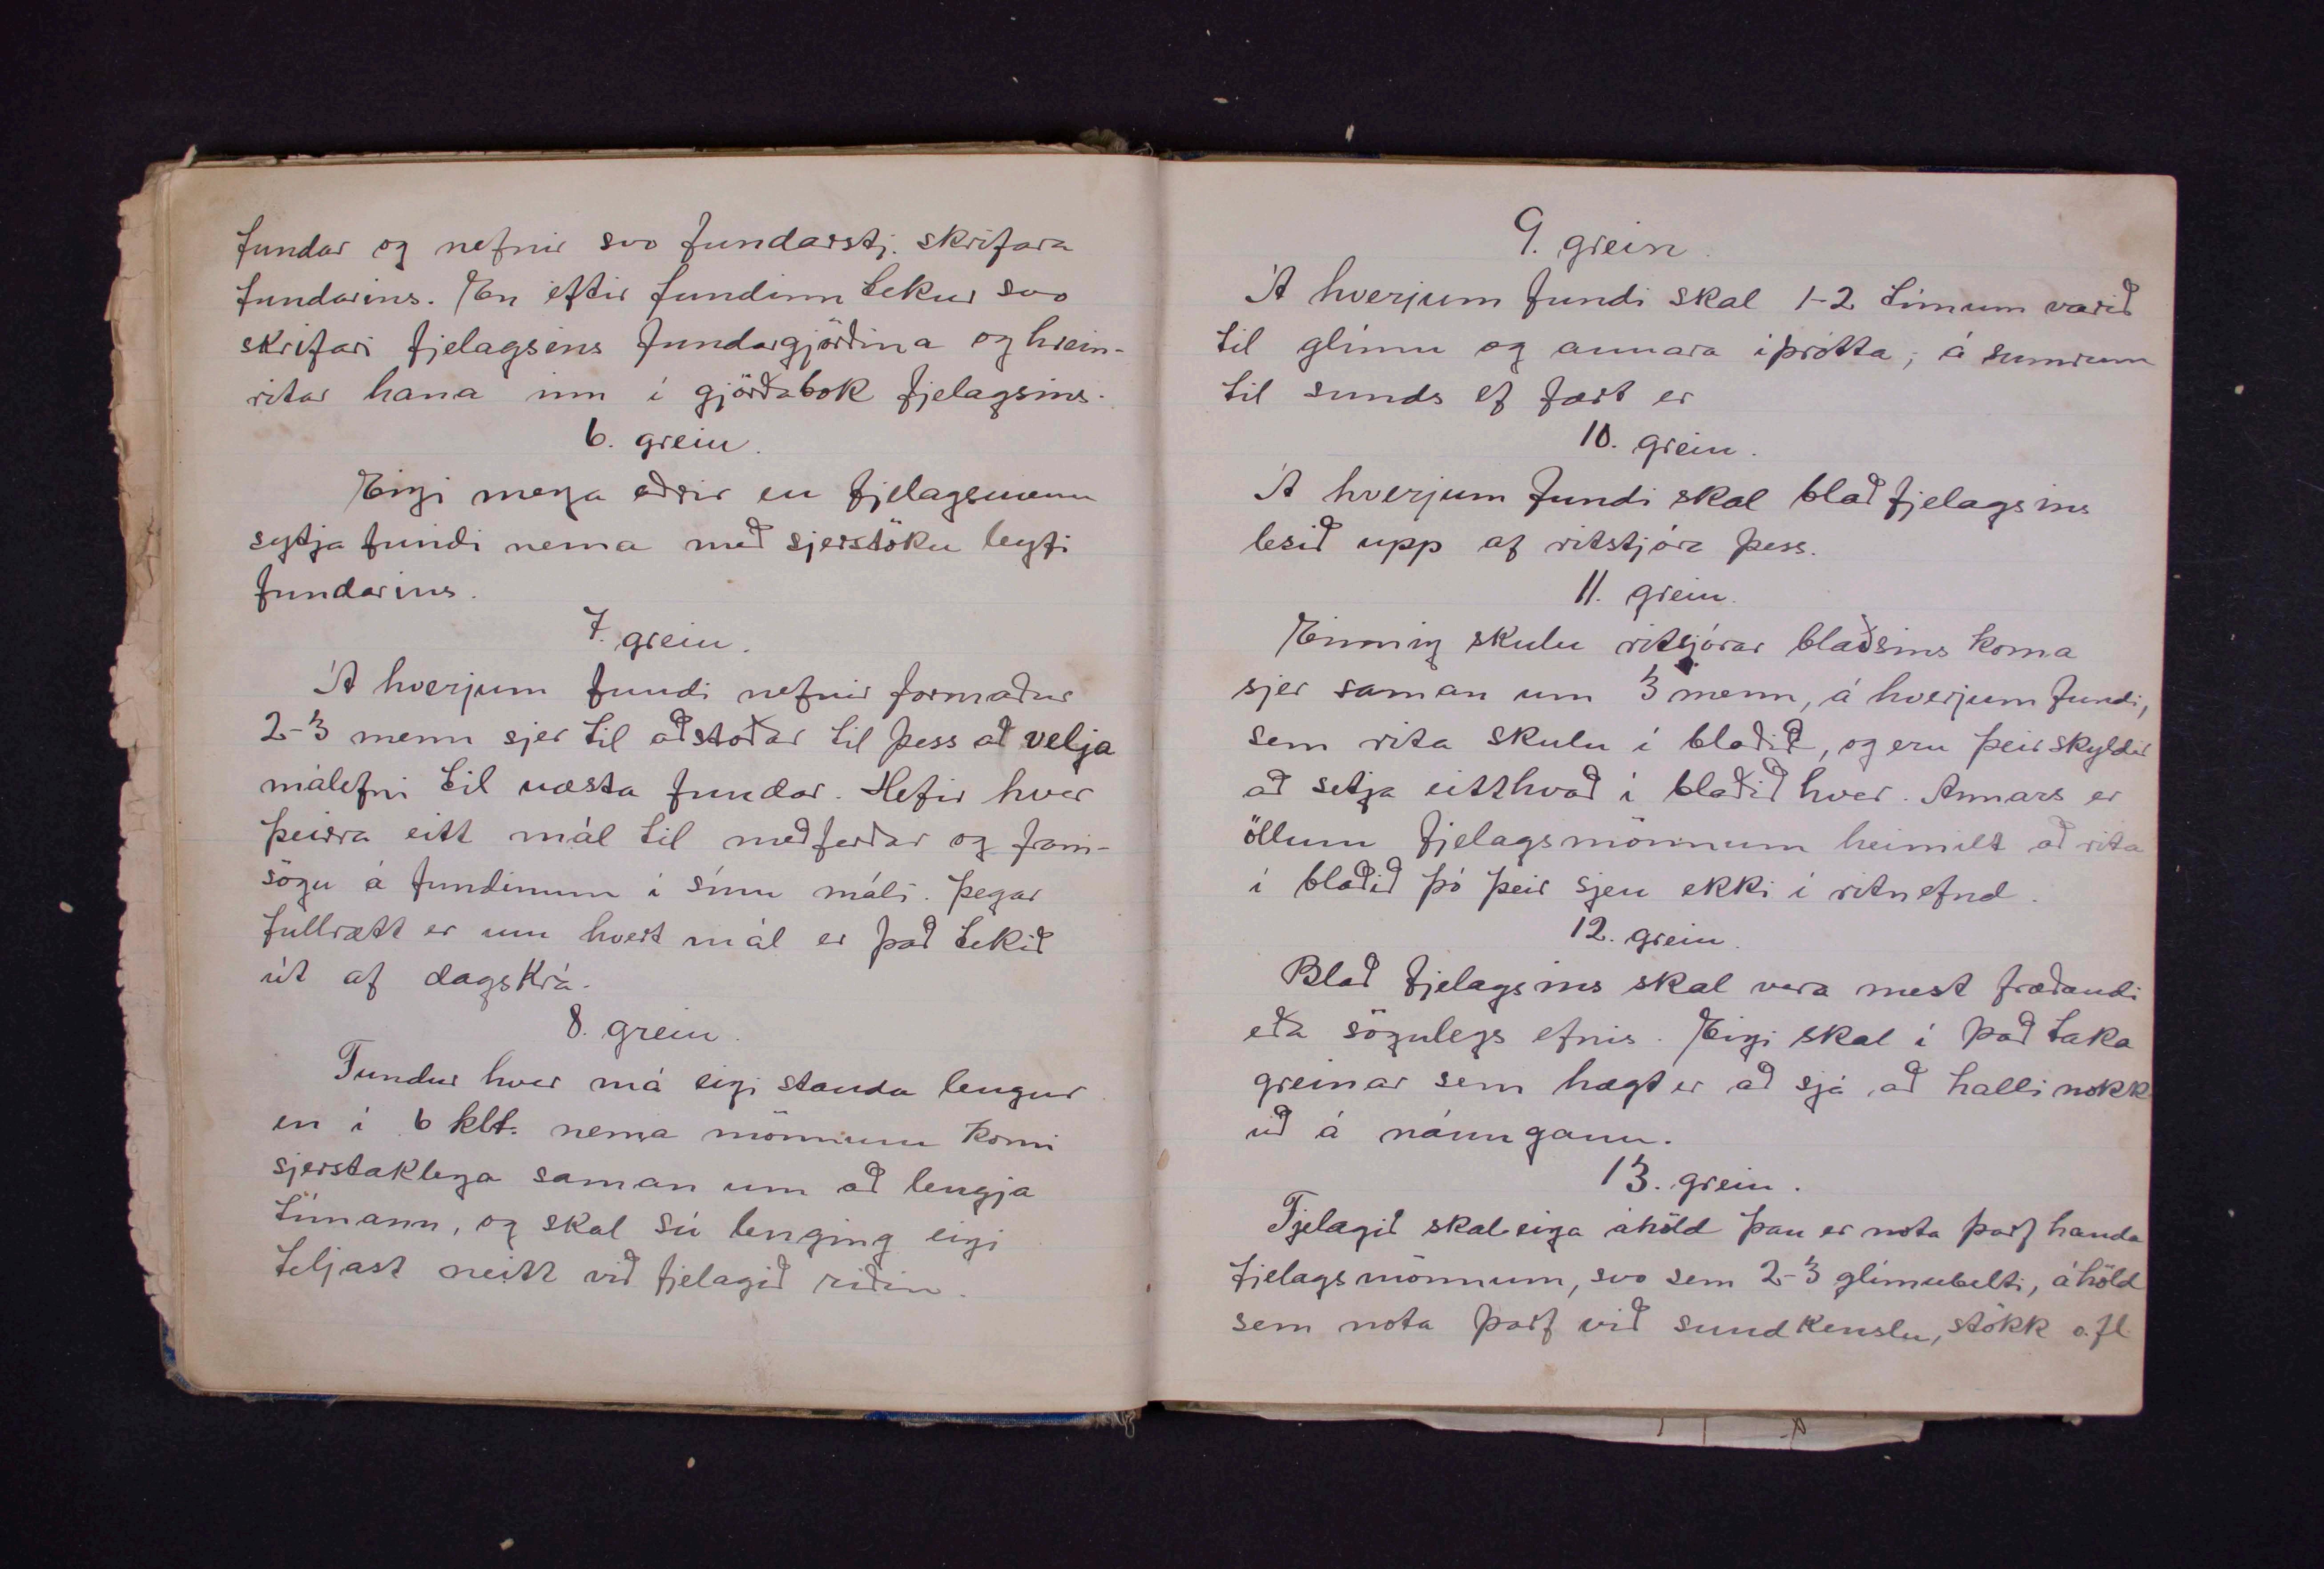 fundar og nefnir svo fundarstj. skrifara
fundarins. En eftir fundinn tekur svo
skrifari fjelagsins fundargjörðina og hrein-
ritar hana inn í gjörðabok fjelagsins.
6. grein.
Eigi mega aðrir en fjelagsmenn
sytja fundi nema með sjerstöku leyfi
fundarins.
7. grein.
Á hverjum fundi nefnir formaður
2-3 menn sjer til aðstoðar til þess að velja
málefni til næsta fundar. Hefir hver
þeirra eitt mál til meðferðar og fram-
sögu á fundinum í sínu máli. Þegar
fullrætt er um hvert mál er það tekið
út af dagskrá.
8. grein.
Fundur hver má eigi standa lengur
en í 6 klt. nema mönnum komi
sjerstaklega saman um að lengja
tímann, og skal sú lenging eigi
teljast neitt við fjelagið riðin.
9. grein.
Á hverjum fundi skal 1-2 tímum varið
til glímu og annara íþrótta, á sumrum
til sunds ef fært er
10. grein.
Á hverjum fundi skal blað fjelagsins
lesið upp af ritstjóra þess.
11. grein.
Einnig skulu ritsjórar blaðsins koma
sjer saman um 3 menn, á hverjum fundi,
sem rita skulu í blaðið, og eru þeir skyldir
að setja eitthvað í blaðið hver. Annars er
öllum fjelagsmönnum heimilt að rita
í blaðið þó þeir sjeu ekki í ritnefnd.
12. grein.
Blað fjelagsins skal vera mest fræðandi
eða sögulegs efnis. Eigi skal í það taka
greinar sem hægt er að sjá að halli nokk
uð á náungann.
13. grein.
Fjelagið skal eiga áhöld þau er nota þarf handa
fjelagsmönnum, svo sem 2-3 glímubelti, áhöld
sem nota þarf við sundkenslu, stökk o.fl.